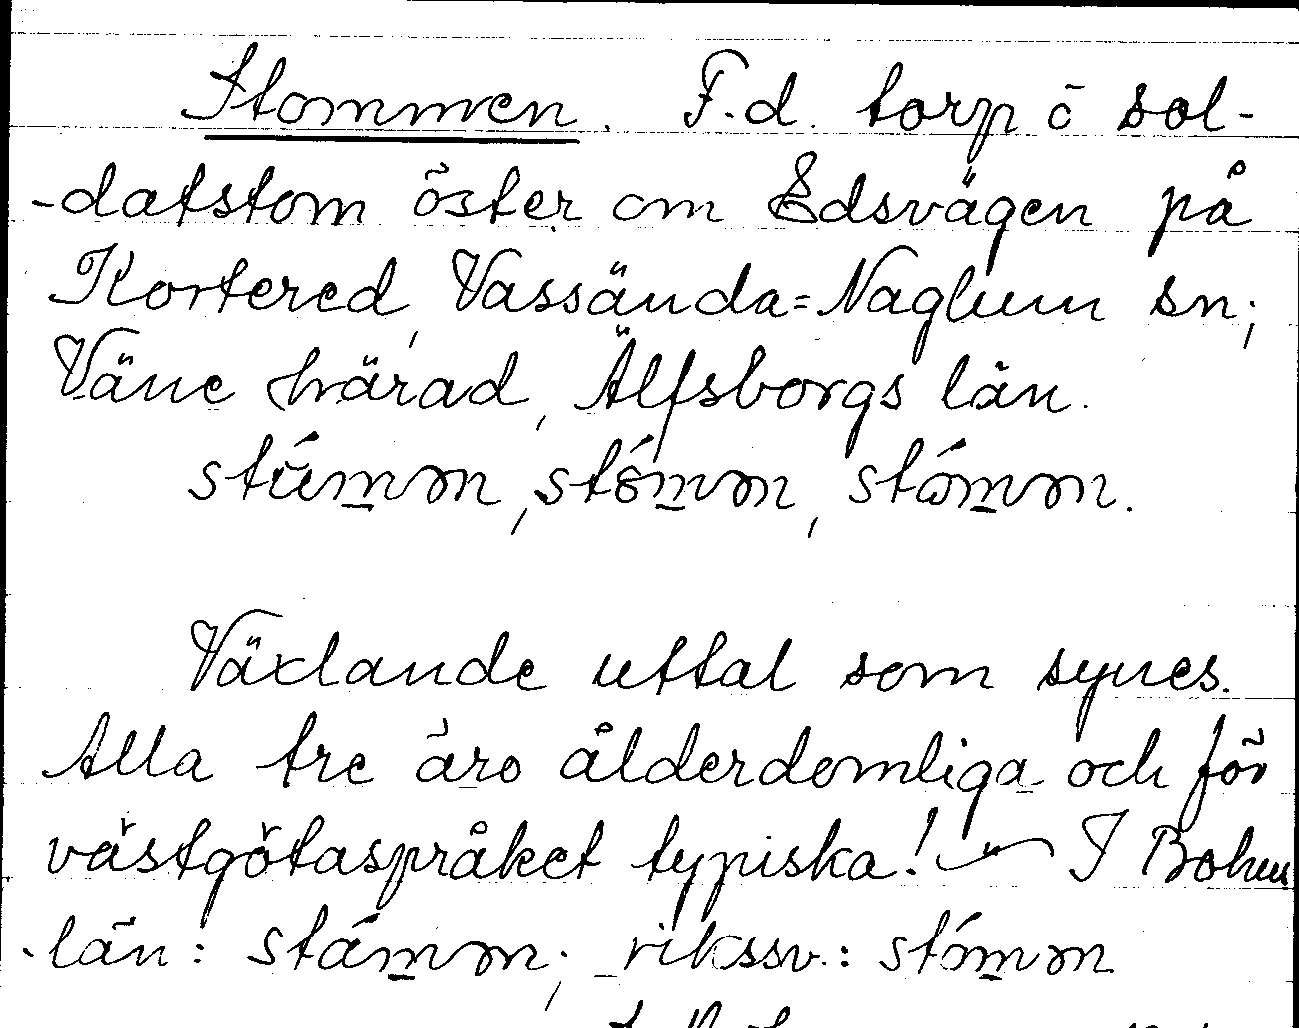 Stommen. F.d. torp ō sol-
-datstom öster om Edsvägen på
Kortered, Vassända=Naglum sn;
Väne härad, Älfsborgs län.
stúmən, stómən, stɷ́mən.
Växlande uttal som synes.
Alla tre äro ålderdomliga och för
västgötaspråket typiska! — I Bohus
-län: stámən; rikssv.: stómən